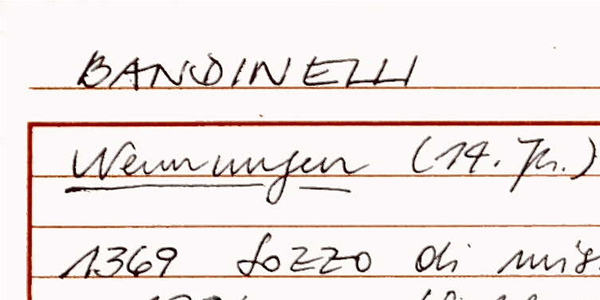 BANDINELLI
Nennungen (14. Jh.)
1369 Sozzo di mis.